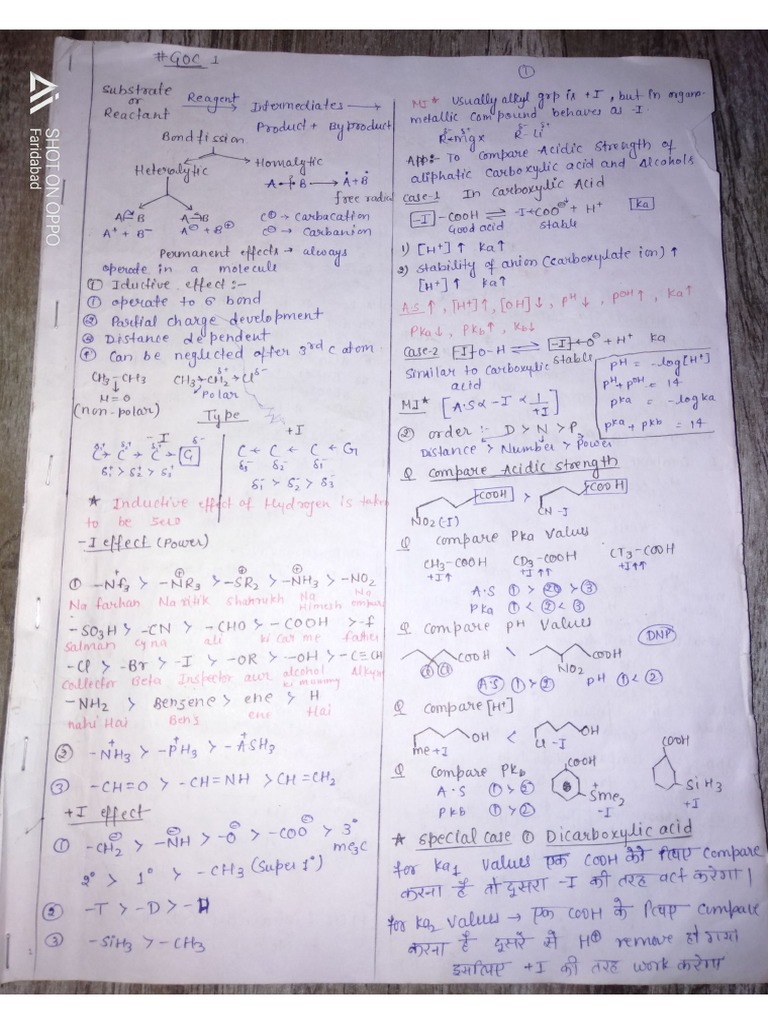 # GOC 1
Substrate or Reactant Reagent → Intermediates →
Product + Byproduct
Bond fission
Heterolytic Homolytic
A B → Ȧ + Ḃ
free radial
A B A B
A⁺ + B⁻ A⊖ + B⊕
C⊕ → Carbacation
C⊖ → Carbanion
Permanent effects → always
operate in a molecule
① Iductive effect :-
① operate to σ bond
② Partial charge development
③ Distance dependent
④ Can be neglected after 3rd C atom
CH3 → CH3 CH3 → CH2 → Cl δ-
M = 0 Polar
(non-polar)
Type
-I
C → C → C → G
δ1+ > δ2+ > δ3+
+I
C ← C ← C ← G
δ3- δ2- δ1-
δ1- > δ2- > δ3-
★ Inductive effect of Hydrogen is taken
to be zero
-I effect (Power)
① -N⁺f3 > -N⊕R3 > -S⊕R2 > -N⊕H3 > -NO2
Na farhan Na ritik Shahrukh Na Himesh No
-SO3H > -CN > -CHO > -COOH > -f
Salman Cyna ali ki car me father
-Cl > -Br > -I > -OR > -OH > -C≡CH
Collector Beta Inspector aur alcohol ki
-NH2 > Benzene > ene > H
nahi Hai Benz ene Hai
② -N⁺H3 > -P⁺H3 > -A⁺SH3
③ -CH=O > -CH=NH > CH=CH2
+I effect
① -CH2⊖ > -N⊖H > -O⊖ > -COO⊖ > 3° me3C
2° > 1° > -CH3 (Super 1°)
② -T > -D > -H
③ -SiH3 > -CH3
①
MI* Usually alkyl grp is +I, but in organo-
metallic compound behaves as -I.
R δ- mgx δ+ R δ- Li δ+
App:- To compare Acidic Strength of
aliphatic carboxylic acid and Alcohols
Case-1 In Carboxylic Acid
-I -COOH ⇌ -I+COO⊖ + H+ Ka
Good acid stable
1) [H+] ↑ Ka ↑
2) Stability of anion (carboxylate ion) ↑
[H+] ↑ Ka ↑
A.S ↑, [H+] ↑, [OH] ↓, pH ↓, pOH ↑, Ka ↑
Pka ↓, Pkb ↑, Kb ↓
Case-2 -I O-H ⇌ -I ←O⊖ + H+ Ka
Similar to carboxylic acid stable
pH = -log[H+]
pH + pOH = 14
pka = -logka
pka + pkb = 14
MI* [A.S ∝ -I ∝ 1/+I]
② order :- D > N > P
Distance > Number > Power
Q Compare Acidic strength
COOH > COOH
NO2(-I) CN -I
Q Compare Pka Values
CH3-COOH CD3-COOH CT3-COOH
+I↑ +I↑↑ +I↑↑
A.S ① > ② > ③
PKa ① < ② < ③
Q Compare pH Values DNP
COOH \ COOH
Cl Cl NO2
A.S ① > ② pH ① < ②
Q Compare [H+]
OH < OH
me +I Cl -I
Q Compare PKb
A.S ① > ②
PKb ① > ②
COOH COOH
S⁺me2 SiH3
-I +I
★ Special case ① Dicarboxylic acid
for Ka1 values एक COOH के लिए compare
करना है तो दूसरा -I की तरह act करेगा।
for Ka2 values → एक COOH के लिए compare
करना है दूसरे से H⊕ remove हो गया
इसलिए +I की तरह work करेगा
SHOT ON OPPO
Faridabad